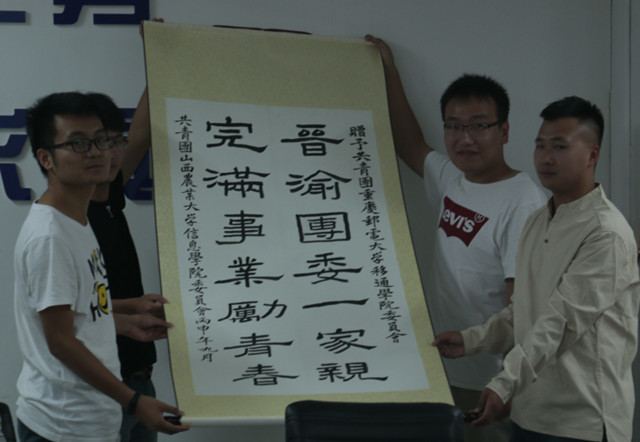 贈予共青團重慶郵電大学移通學院委員會
晉渝團委一家親
完滿事業勵青春
共青團山西農業大学信息學院委員會丙申年九月
LEVI'S